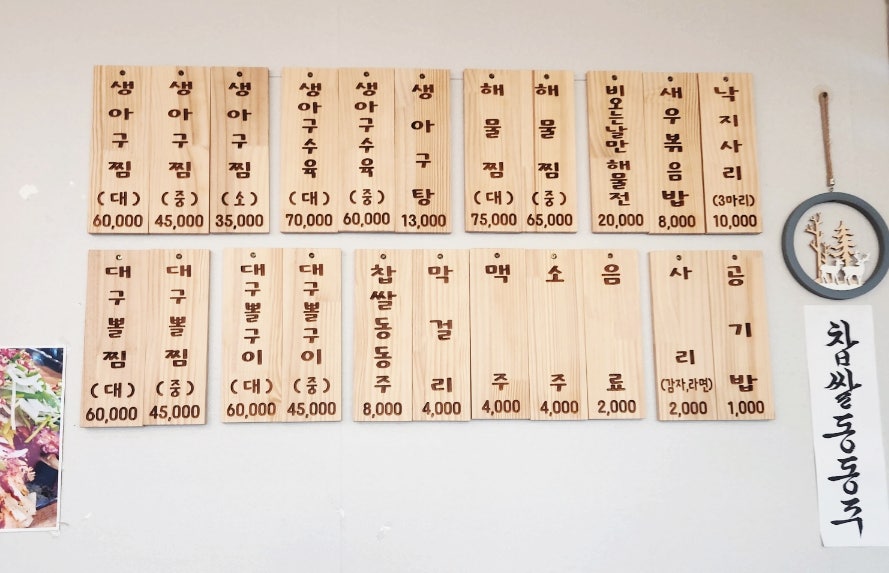 생아구찜 (대) 60,000
생아구찜 (중) 45,000
생아구찜 (소) 35,000
생아구수육 (대) 70,000
생아구수육 (중) 60,000
생아구탕 13,000
해물찜 (대) 75,000
해물찜 (중) 65,000
비오는날만해물전 20,000
새우볶음밥 8,000
낙지사리 (3마리) 10,000
대구뽈찜 (대) 60,000
대구뽈찜 (중) 45,000
대구뽈구이 (대) 60,000
대구뽈구이 (중) 45,000
찹쌀동동주 8,000
막걸리 4,000
맥주 4,000
소주 4,000
음료 2,000
사리 (감자,라면) 2,000
공기밥 1,000
찹쌀동동주